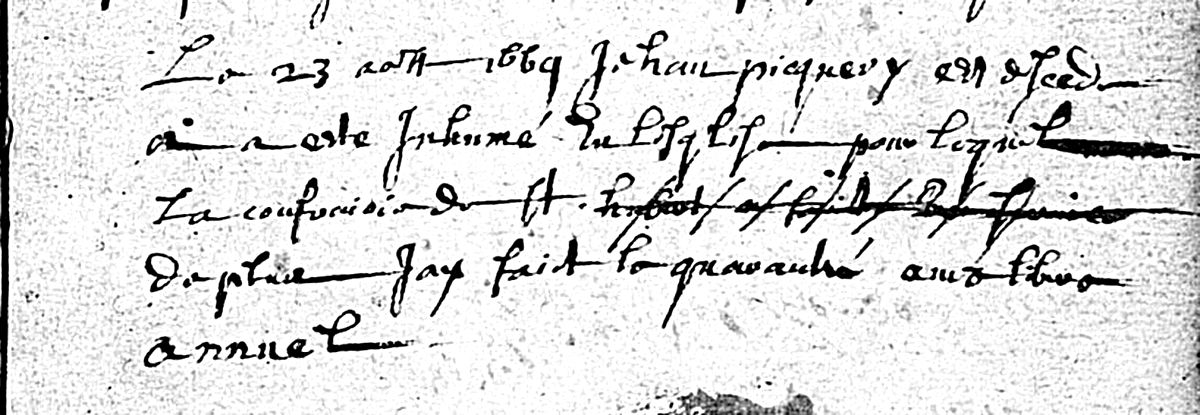 Le 23 aoust 1669 Jehan picquery est desced
a este Inhumé En lesglise pour lequel
La confrairie de St
De plus Jay faict le quarante avec libera
annuel